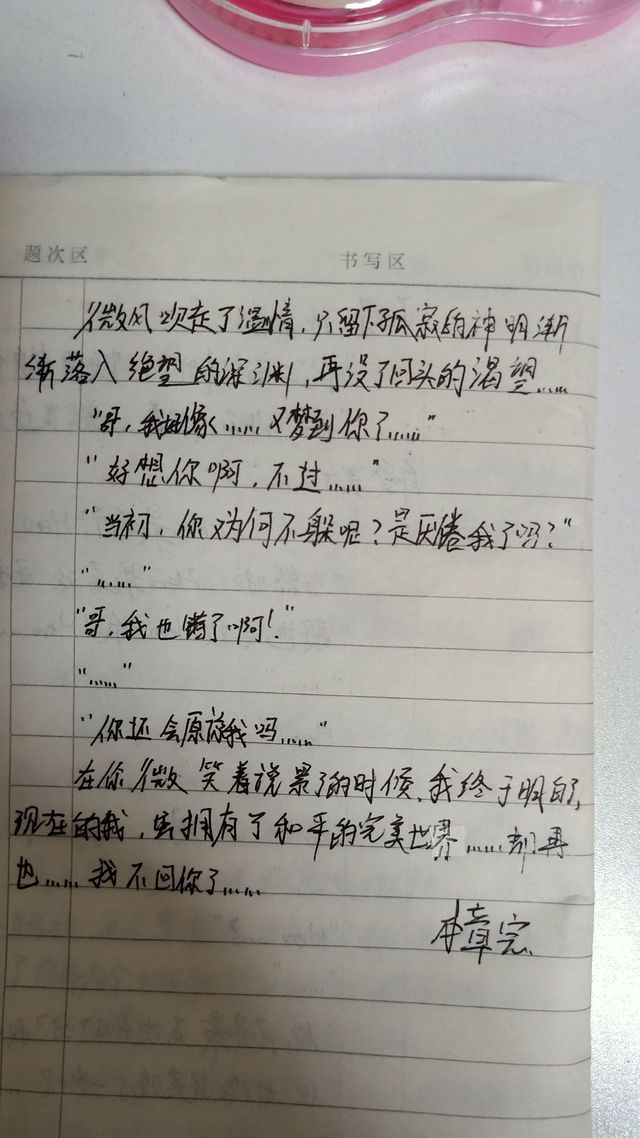 题次区 书写区
微风吹走了温情，只留下孤寂的神明渐
渐落入绝望的深渊，再没了回头的渴望……
“哥，我好像……又梦到你了……”
“好想你啊，不过……”
“当初，你为何不躲呢？是厌倦我了吗？”
“……”
“哥，我也错了啊！”
“……”
“你还会原谅我吗……”
在你微笑着说累了的时候，我终于明白了，
现在的我，虽拥有了和平的完美世界……却再
也……找不回你了……
本章完